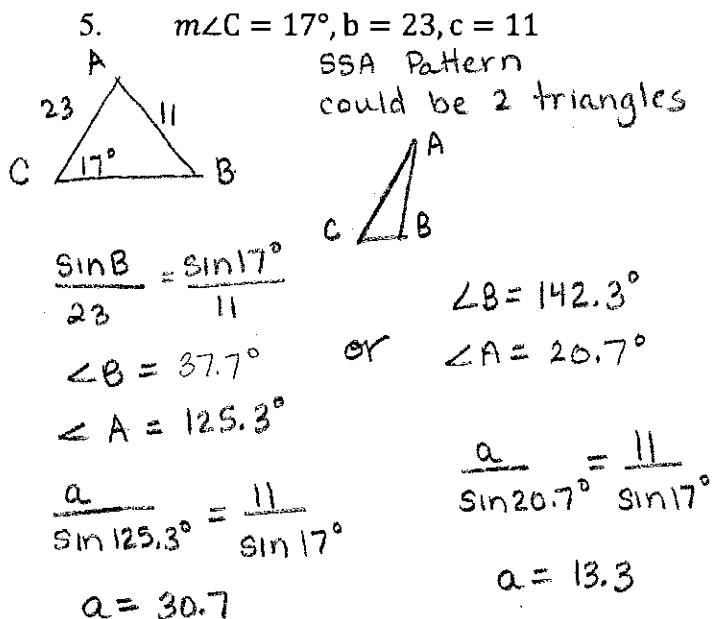 5. m∠C = 17°, b = 23, c = 11
SSA Pattern
could be 2 triangles
A
23
11
C
17°
B
A
C
B
sin B / 23 = sin 17° / 11
∠B = 37.7°
∠A = 125.3°
a / sin 125.3° = 11 / sin 17°
a = 30.7
or
∠B = 142.3°
∠A = 20.7°
a / sin 20.7° = 11 / sin 17°
a = 13.3